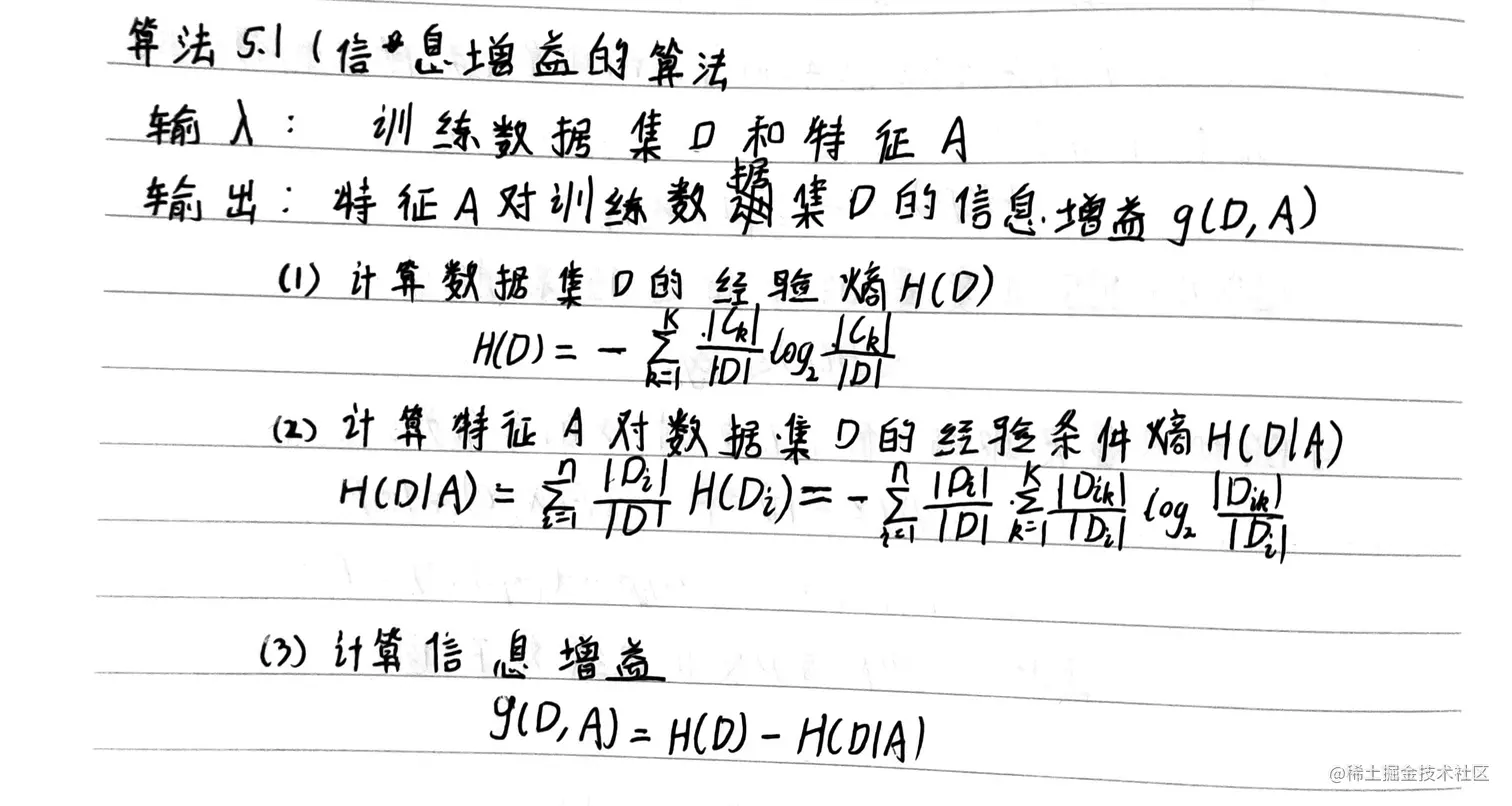 算法 5.1 (信息增益的算法
输入: 训练数据集D和特征A
输出: 特征A对训练数据集D的信息增益 g(D,A)
(1) 计算数据集D的经验熵H(D)
H(D) = - \sum_{k=1}^{K} \frac{|C_k|}{|D|} log_2 \frac{|C_k|}{|D|}
(2) 计算特征A对数据集D的经验条件熵H(D|A)
H(D|A) = \sum_{i=1}^{n} \frac{|D_i|}{|D|} H(D_i) = - \sum_{i=1}^{n} \frac{|D_i|}{|D|} \sum_{k=1}^{K} \frac{|D_{ik}|}{|D_i|} log_2 \frac{|D_{ik}|}{|D_i|}
(3) 计算信息增益
g(D,A) = H(D) - H(D|A)
@稀土掘金技术社区